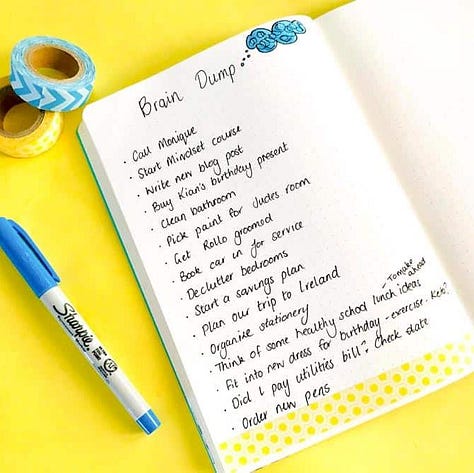 Brain Dump
· Call Monique
· Start Mindset course
· Write new blog post
· Buy Kian's birthday present
· Clean bathroom
· Pick paint for Judes room
· Get Rollo groomed
· Book car in for service
· Declutter bedrooms
· Start a savings plan
· Plan our trip to Ireland
· Organise stationery
· Think of some healthy school lunch ideas - Tomake ahead
· Fit into new dress for birthday - exercise. Keto?
· Did I pay utilities bill? Check date
· Order new pens
Sharpie